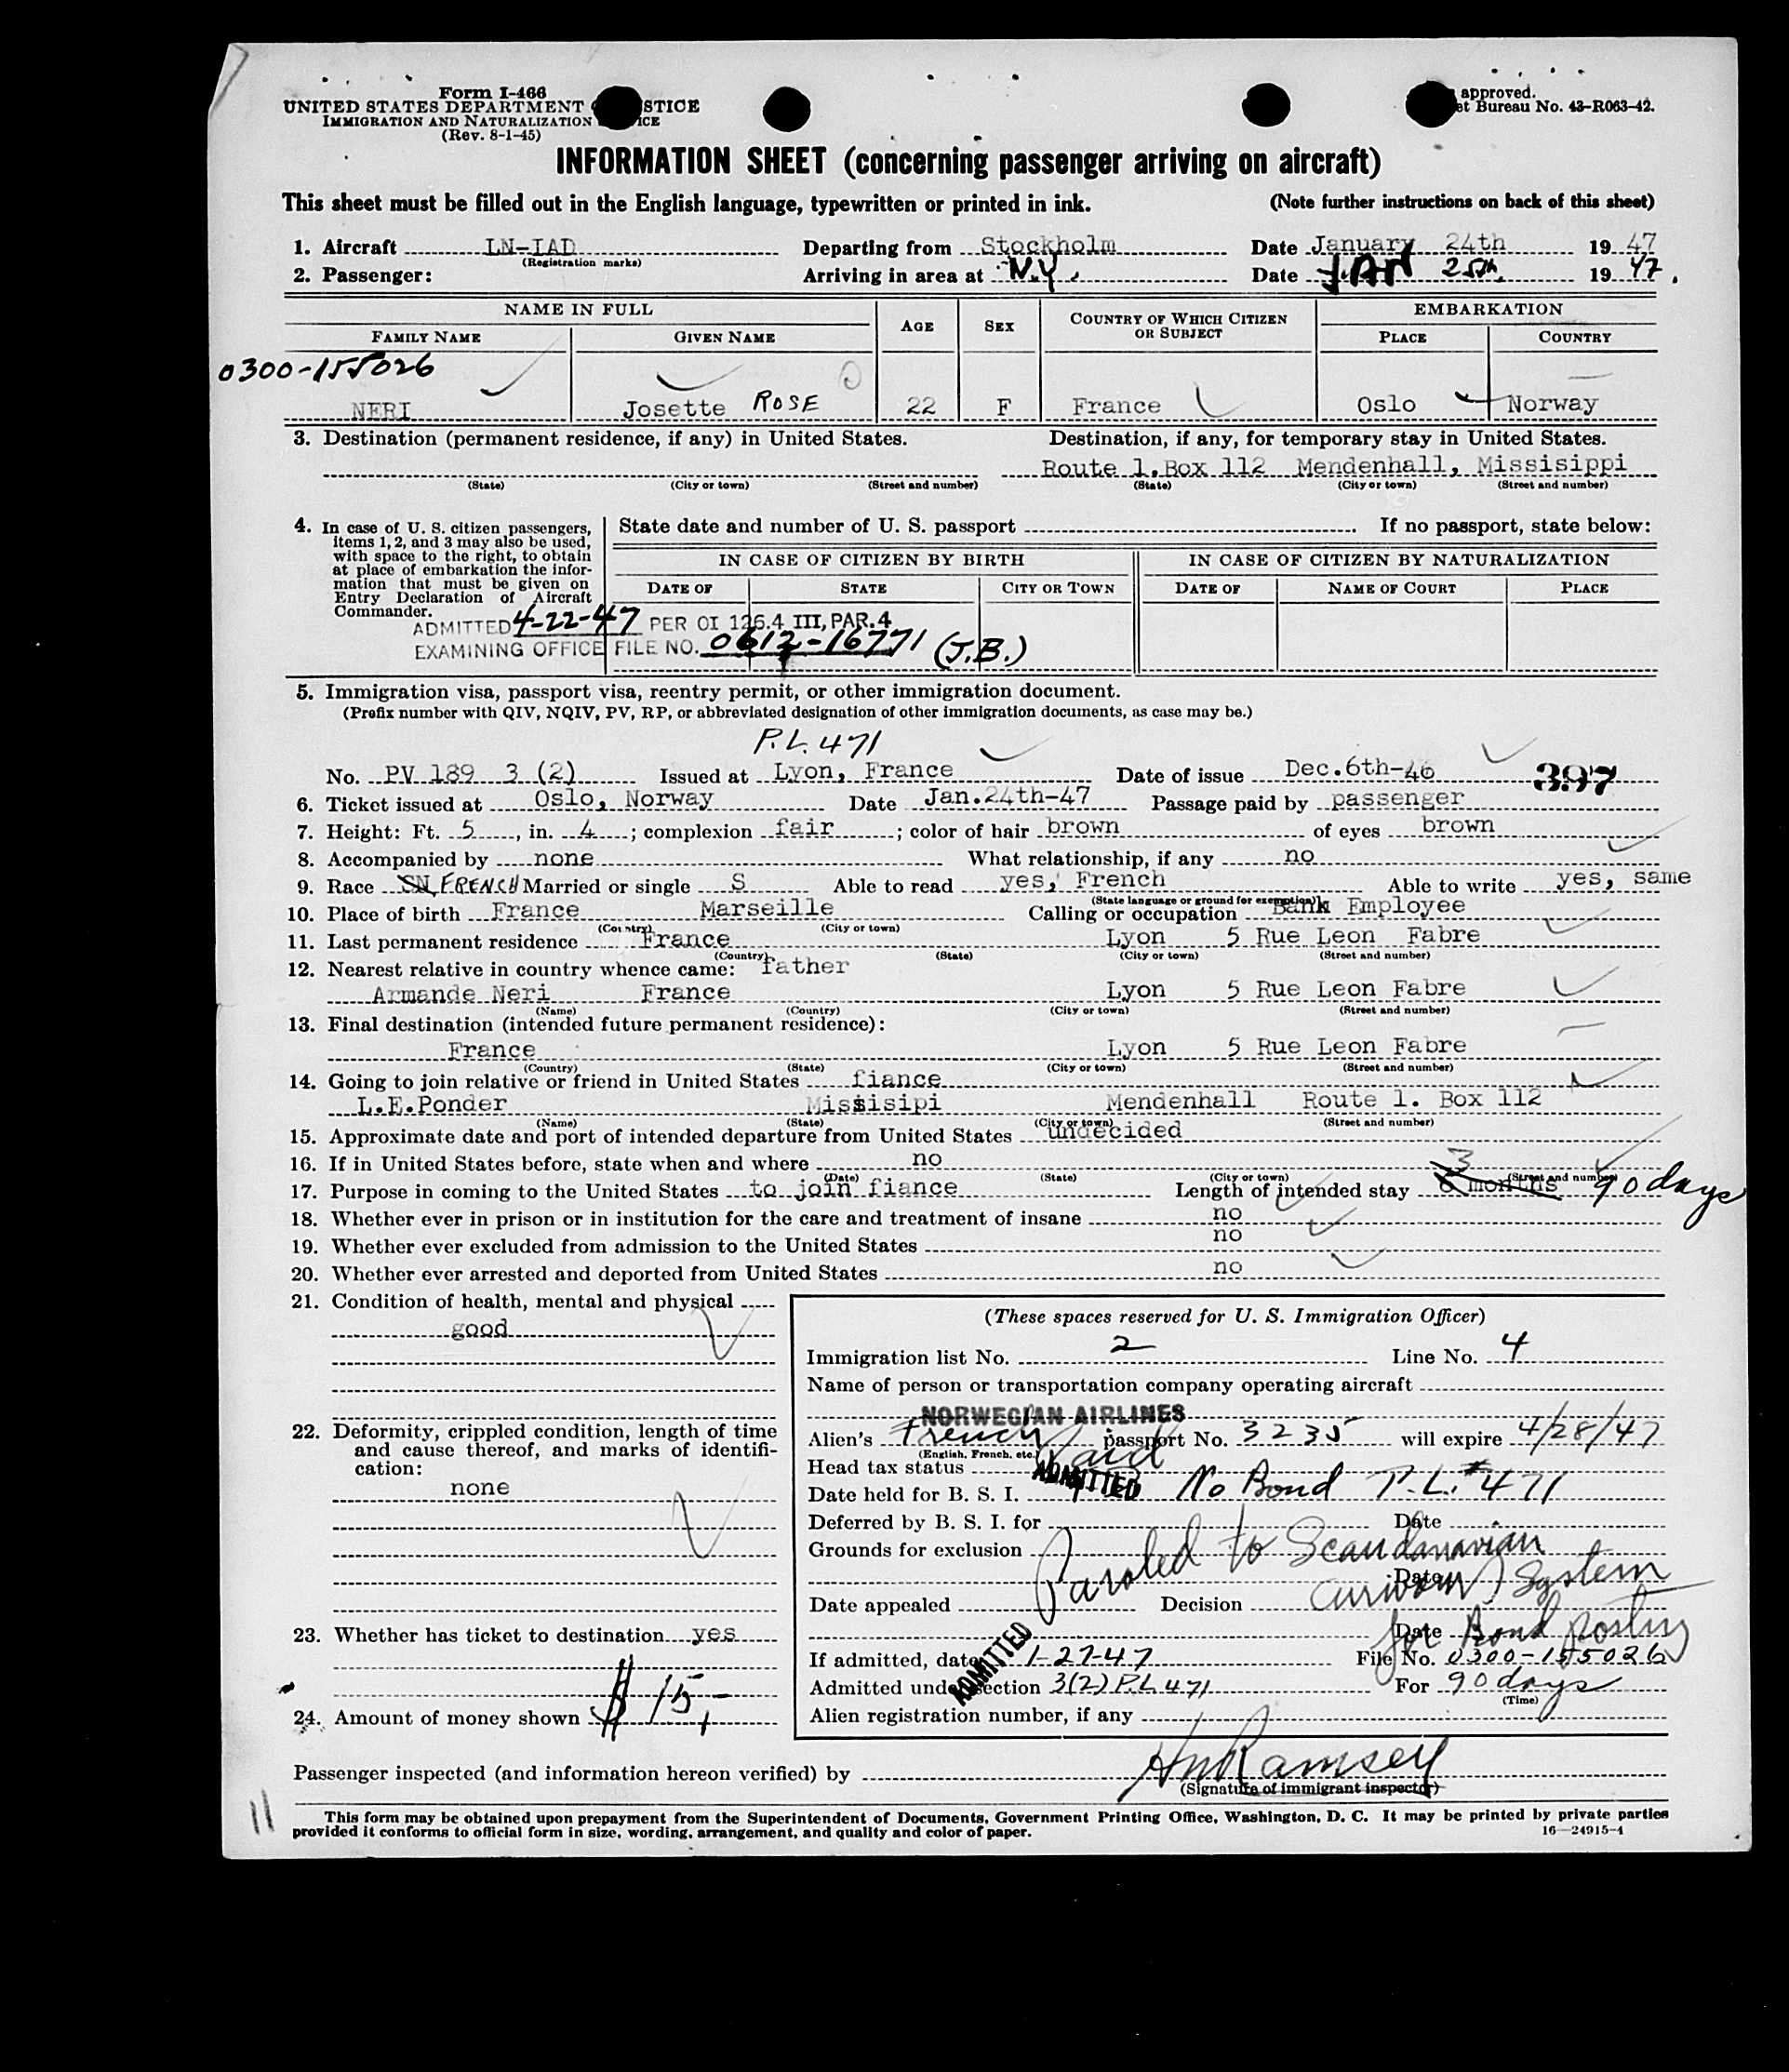 Form I-466
UNITED STATES DEPARTMENT STICE
IMMIGRATION AND NATURALIZATION ICE
(Rev. 8-1-45)
approved.
et Bureau No. 43-R063-42.
INFORMATION SHEET (concerning passenger arriving on aircraft)
This sheet must be filled out in the English language, typewritten or printed in ink. (Note further instructions on back of this sheet)
1. Aircraft LN-IAD Departing from Stockholm Date January 24th 1947
(Registration marks)
2. Passenger: Arriving in area at N.Y. Date JAN 25th 1947.
NAME IN FULL AGE SEX COUNTRY OF WHICH CITIZEN OR SUBJECT EMBARKATION
FAMILY NAME GIVEN NAME PLACE COUNTRY
0300-155026
NERI Josette ROSE 22 F France Oslo Norway
3. Destination (permanent residence, if any) in United States. Destination, if any, for temporary stay in United States.
Route 1.Box 112 Mendenhall, Missisippi
(State) (City or town) (Street and number) (State) (City or town) (Street and number)
4. In case of U. S. citizen passengers, items 1, 2, and 3 may also be used, with space to the right, to obtain at place of embarkation the information that must be given on Entry Declaration of Aircraft Commander.
State date and number of U. S. passport If no passport, state below:
IN CASE OF CITIZEN BY BIRTH IN CASE OF CITIZEN BY NATURALIZATION
DATE OF STATE CITY OR TOWN DATE OF NAME OF COURT PLACE
ADMITTED 4-22-47 PER OI 126.4 III, PAR. 4
EXAMINING OFFICE FILE NO. 0612-16771 (J.B.)
5. Immigration visa, passport visa, reentry permit, or other immigration document.
(Prefix number with QIV, NQIV, PV, RP, or abbreviated designation of other immigration documents, as case may be.)
P.L. 471
No. PV 189 3 (2) Issued at Lyon, France Date of issue Dec.6th-46 397
6. Ticket issued at Oslo, Norway Date Jan.24th-47 Passage paid by passenger
7. Height: Ft. 5, in. 4; complexion fair; color of hair brown of eyes brown
8. Accompanied by none What relationship, if any no
9. Race SN FRENCH Married or single S Able to read yes, French Able to write yes, same
(State language or ground for exemption)
10. Place of birth France Marseille Calling or occupation Bank Employee
(Country) (City or town)
11. Last permanent residence France Lyon 5 Rue Leon Fabre
(Country) (State) (City or town) (Street and number)
12. Nearest relative in country whence came: father
Armande Neri France Lyon 5 Rue Leon Fabre
(Name) (Country) (City or town) (Street and number)
13. Final destination (intended future permanent residence):
France Lyon 5 Rue Leon Fabre
(Country) (State) (City or town) (Street and number)
14. Going to join relative or friend in United States fiance
L.E.Ponder Missisipi Mendenhall Route 1. Box 112
(Name) (State) (City or town) (Street and number)
15. Approximate date and port of intended departure from United States undecided
16. If in United States before, state when and where no
(Date) (State) (City or town) (Street and number)
17. Purpose in coming to the United States to join fiance Length of intended stay 3 6 months 90 days
18. Whether ever in prison or in institution for the care and treatment of insane no
19. Whether ever excluded from admission to the United States no
20. Whether ever arrested and deported from United States no
21. Condition of health, mental and physical
good
22. Deformity, crippled condition, length of time and cause thereof, and marks of identification:
none
23. Whether has ticket to destination yes
24. Amount of money shown $ 15,-
(These spaces reserved for U. S. Immigration Officer)
Immigration list No. 2 Line No. 4
Name of person or transportation company operating aircraft
NORWEGIAN AIRLINES
Alien's French passport No. 3235 will expire 4/28/47
(English, French, etc.)
Head tax status Paid
Date held for B. S. I. ADMITTED No Bond P.L. #471
Deferred by B. S. I. for Date
Grounds for exclusion Paroled to Scandanavian
Date
Airways System
Date appealed Decision
Date
for Bond posting
If admitted, date 1-27-47 File No. 0300-155026
ADMITTED
Admitted under section 3(2) P.L 471 For 90 days
(Time)
Alien registration number, if any
Passenger inspected (and information hereon verified) by HM Ramsey
(Signature of immigrant inspector)
This form may be obtained upon prepayment from the Superintendent of Documents, Government Printing Office, Washington, D. C. It may be printed by private parties
provided it conforms to official form in size, wording, arrangement, and quality and color of paper. 16—24915-4
11